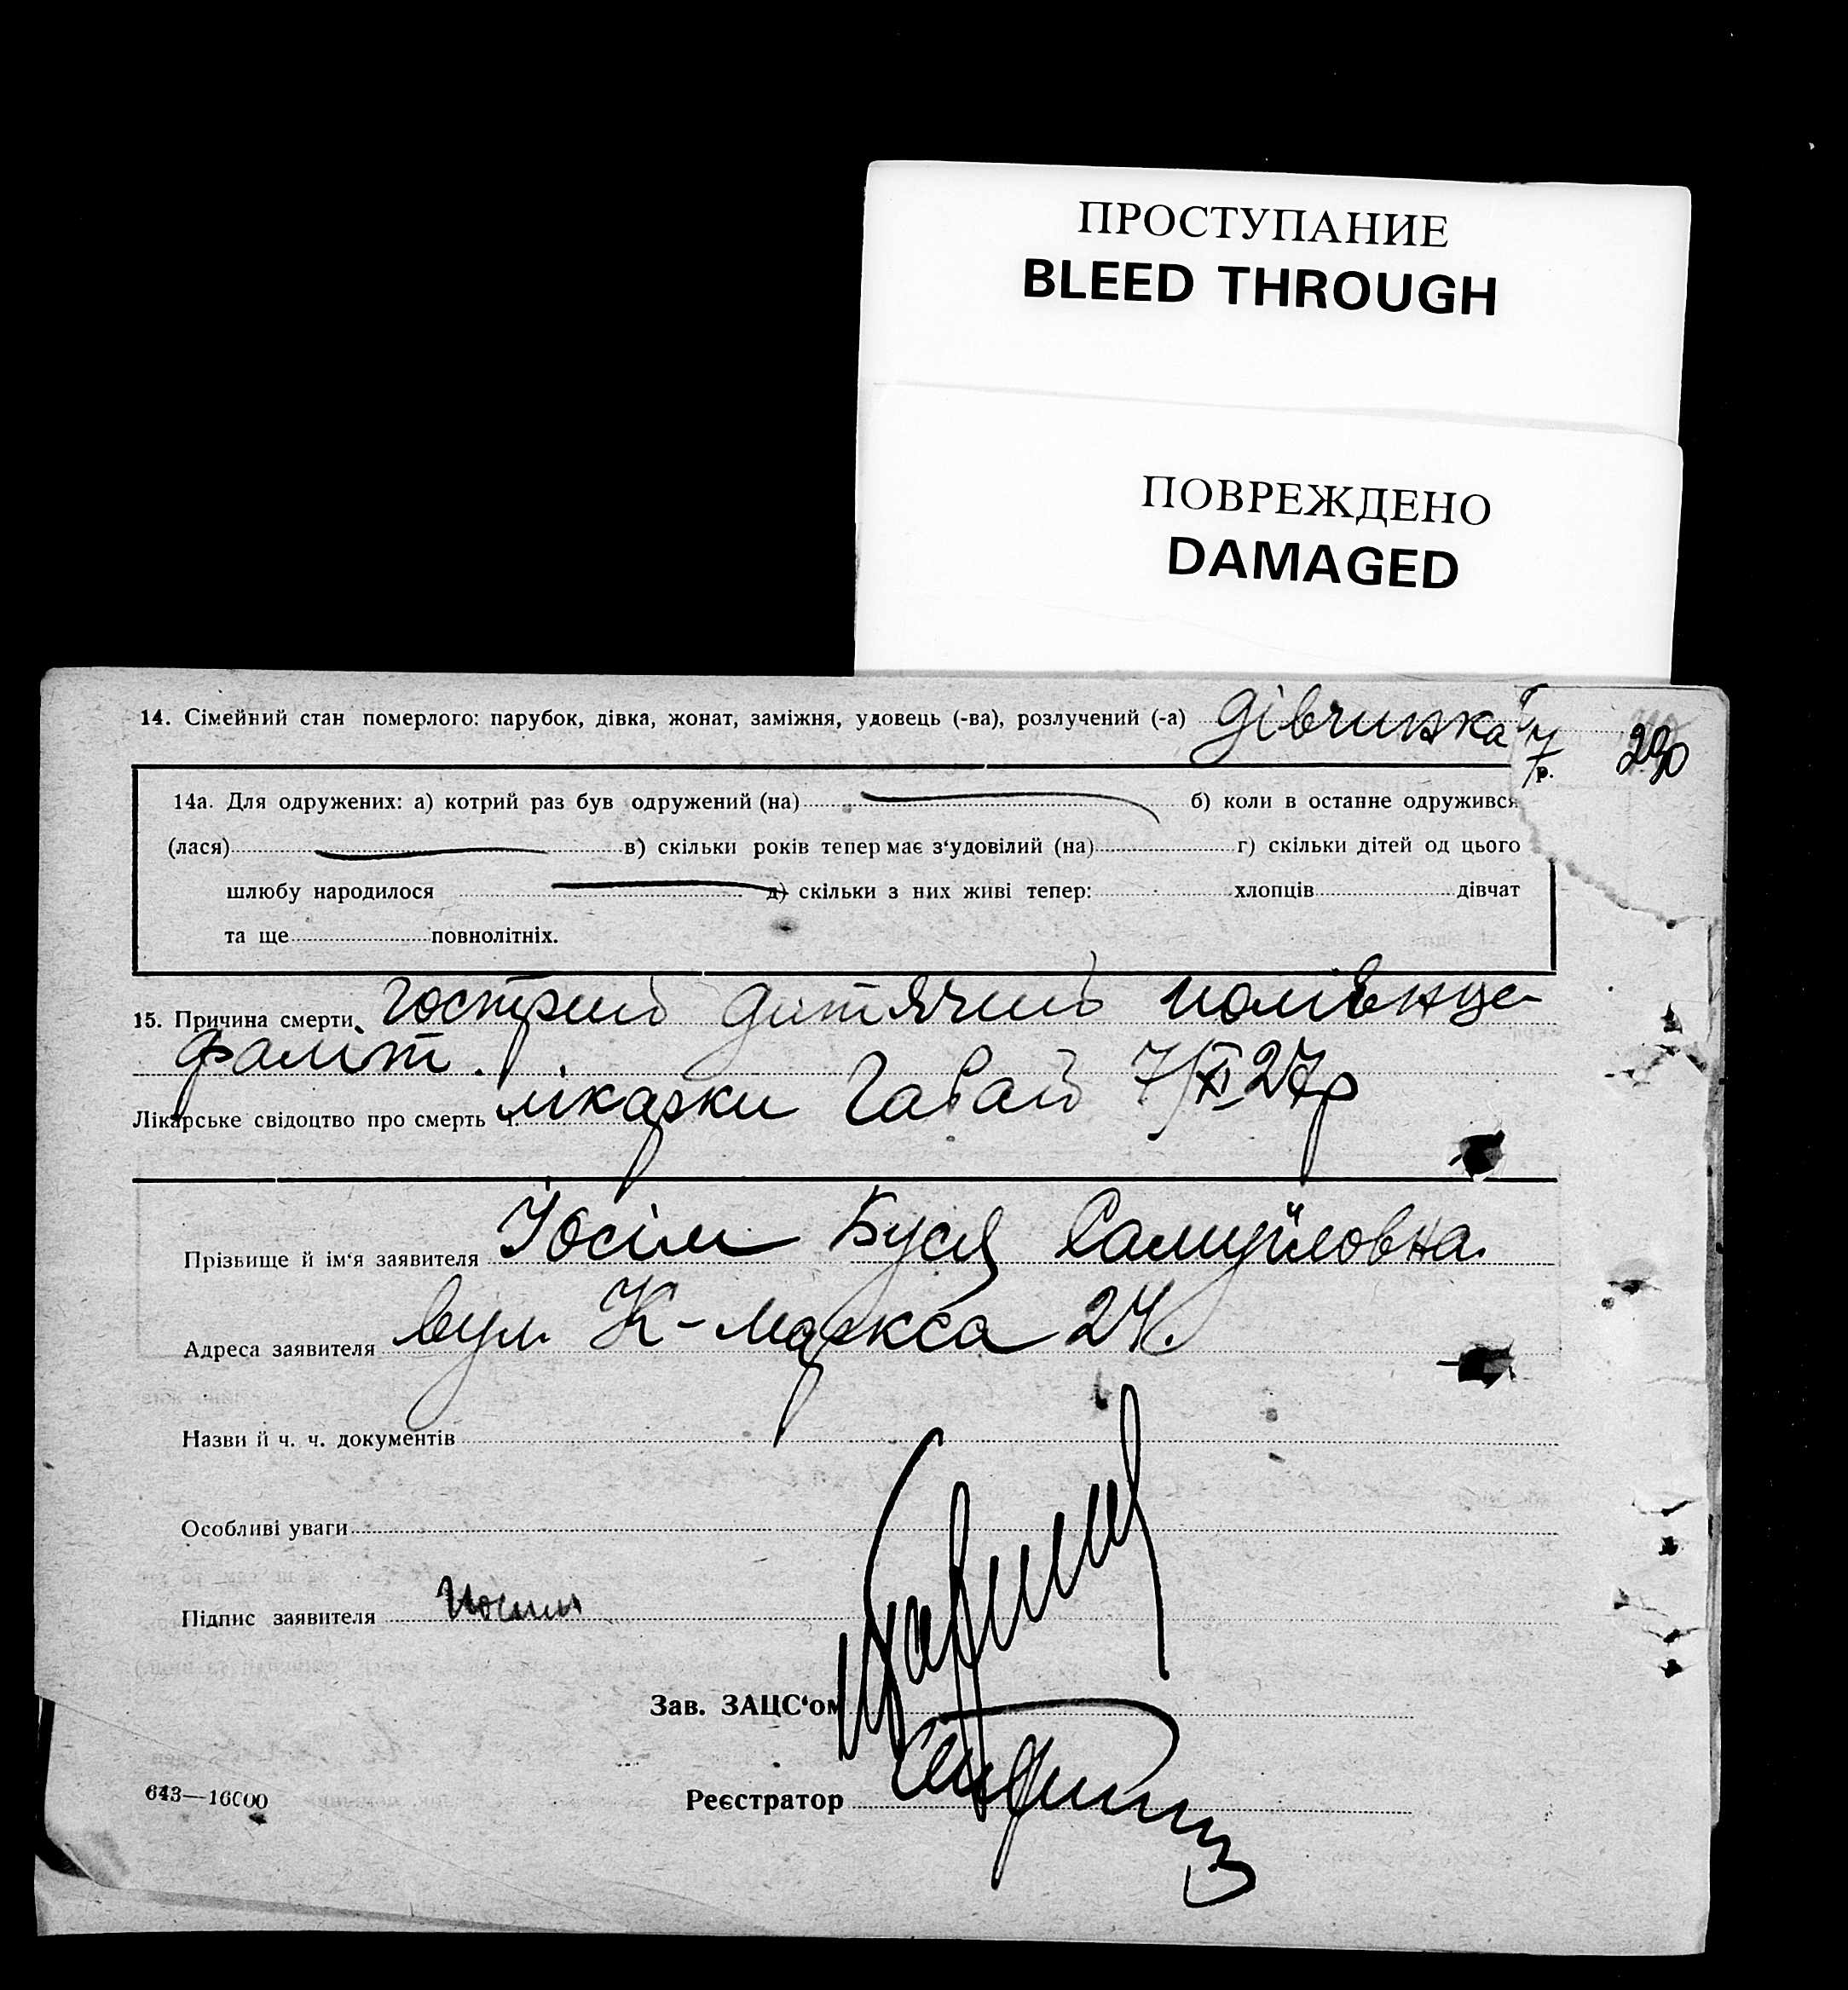 ПРОСТУПАНИЕ
BLEED THROUGH
ПОВРЕЖДЕНО
DAMAGED
14. Сімейний стан померлого: парубок, дівка, жонат, заміжня, удовець (-ва), розлучений (-а) дівчинка
290
р.
14а. Для одружених: а) котрий раз був одружений (на) б) коли в останне одружився
(лася) в) скільки років тепер має з'удовілий (на) г) скільки дітей од цього
шлюбу народилося д) скільки з них живі тепер: хлопців дівчат
та ще повнолітніх.
15. Причина смерти гострий дитячий поліенце-
фаліт.
Лікарське свідоцтво про смерть ч. лікарки Габай 7/XI 27р
Прізвище й ім'я заявителя Йосім Буся Самуйловна.
Адреса заявителя вул. К-Маркса 24.
Назви й ч. ч. документів
Особливі уваги
Підпис заявителя
Зав. ЗАЦС'ом
Реєстратор
643—16000